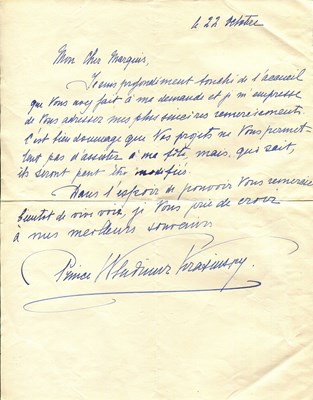 le 22 Octobre
Mon Cher Marquis,
Je suis profondiment touché de l'accueil
que Vous avez fait à ma demande et je m'empresse
de Vous adresser mes plus sincères remerciements.
C'est bien dommage que Vos projets ne Vous permet-
tent pas d'assister à ma fête, mais, qui sait,
ils seront peut être modifiés.
Dans l'espoir de pouvoir Vous remercier
bientot de vive voix, je Vous prie de croire
à mes meilleurs souvenirs
Prince Wladimir